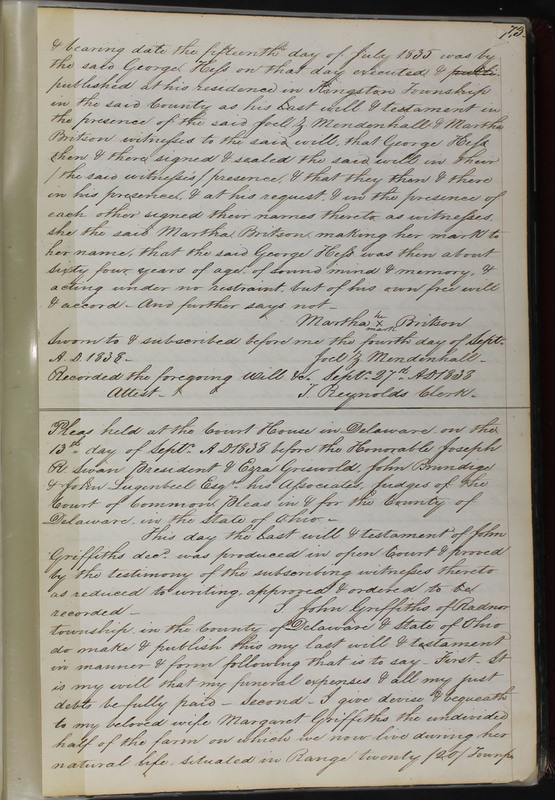 73
& bearing date the fifteenth day of July 1835 was by
the said George Heſs on that day executed &
published at his residence in Kingston Township
in the said County as his Last will & testament in
the presence of the said Joel Z Mendenhall & Martha
Britson witneſses to the said will, that George Heſs
then & there signed & sealed the said will in their
/the said witneſsis/ presence, & that they then & there
in his presence, & at his request, & in the presence of
each other signed their names thereto as witneſses,
she the said Martha Britson making her mark to
her name, that the said George Heſs was then about
sixty four years of age, of sound mind & memory, &
acting under no restraint, but of his own free will
& accord - And further says not -
Martha her X mark Britson
Sworn to & subscribed before me the fourth day of Sept.
A.D. 1838 - Joel Z Mendenhall -
Recorded the foregoing Will &c Sept. 27th AD 1838
Attest - T. Reynolds Clerk -
Pleas held at the Court House in Delaware on the
13th day of Sept. AD 1838 before the Honorable Joseph
R Swan President & Ezra Griswold, John Brundige
& John Lugenbeel Esqrs. his Aſsociates, Judges of the
Court of Common Pleas in & for the County of
Delaware in the State of Ohio -
This day the Last will & testament of John
Griffiths decd. was produced in open Court & proved
by the testimony of the subscribing witneſses thereto
as reduced to writing, approved & ordered to be
recorded - I John Griffiths of Radnor
township in the County of Delaware & State of Ohio
do make & publish this my last will & testament
in manner & form following that is to say - First - It
is my will that my funeral expenses & all my just
debts be fully paid - Second - I give devise & bequeath
to my beloved wife Margaret Griffiths the undivided
half of the farm on which we now live during her
natural life, situated in Range twenty /20/ Townp